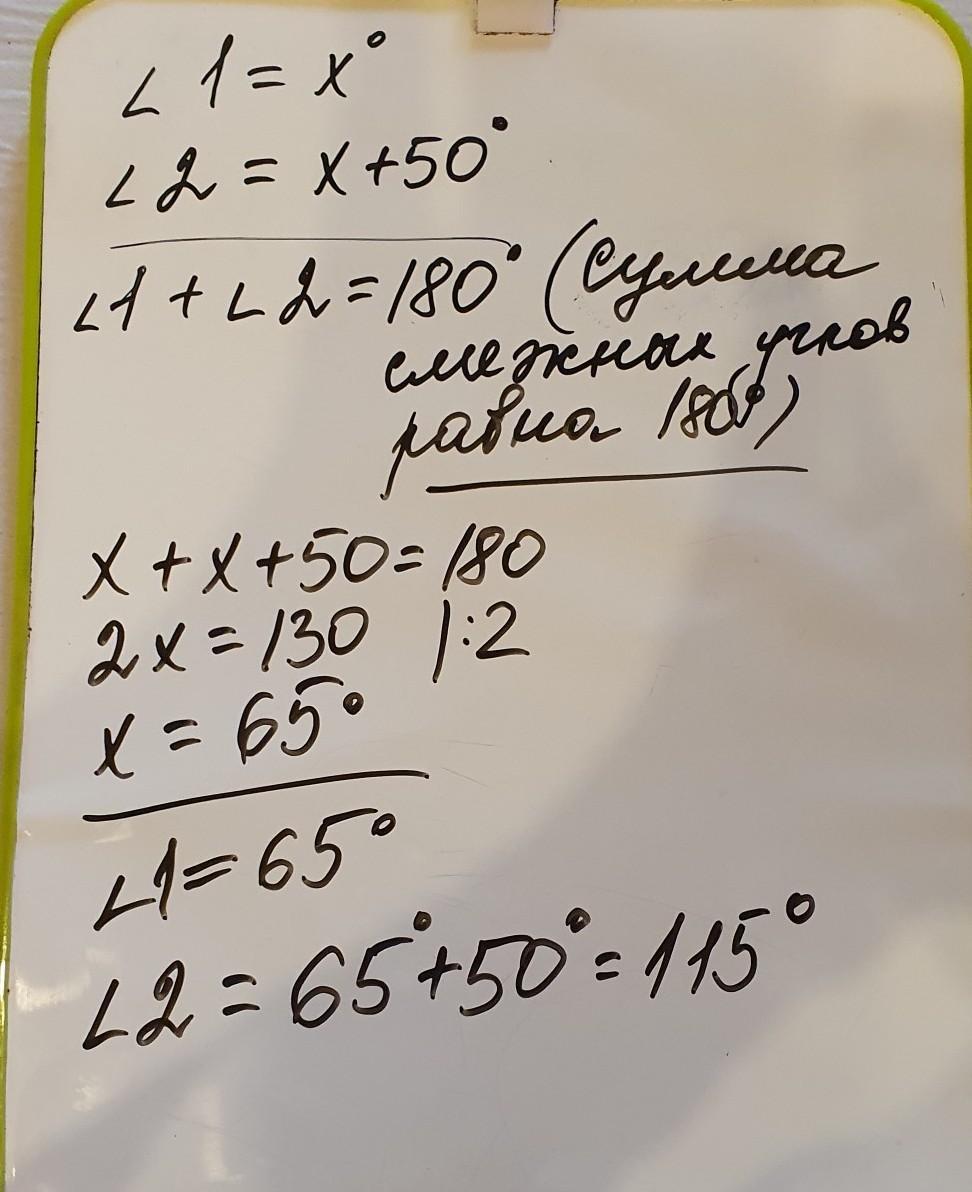 ∠1 = x°
∠2 = x+50°
∠1 + ∠2 = 180° (сумма
смежных углов
равна 180°)
x + x + 50 = 180
2x = 130 |:2
x = 65°
∠1 = 65°
∠2 = 65°+50° = 115°